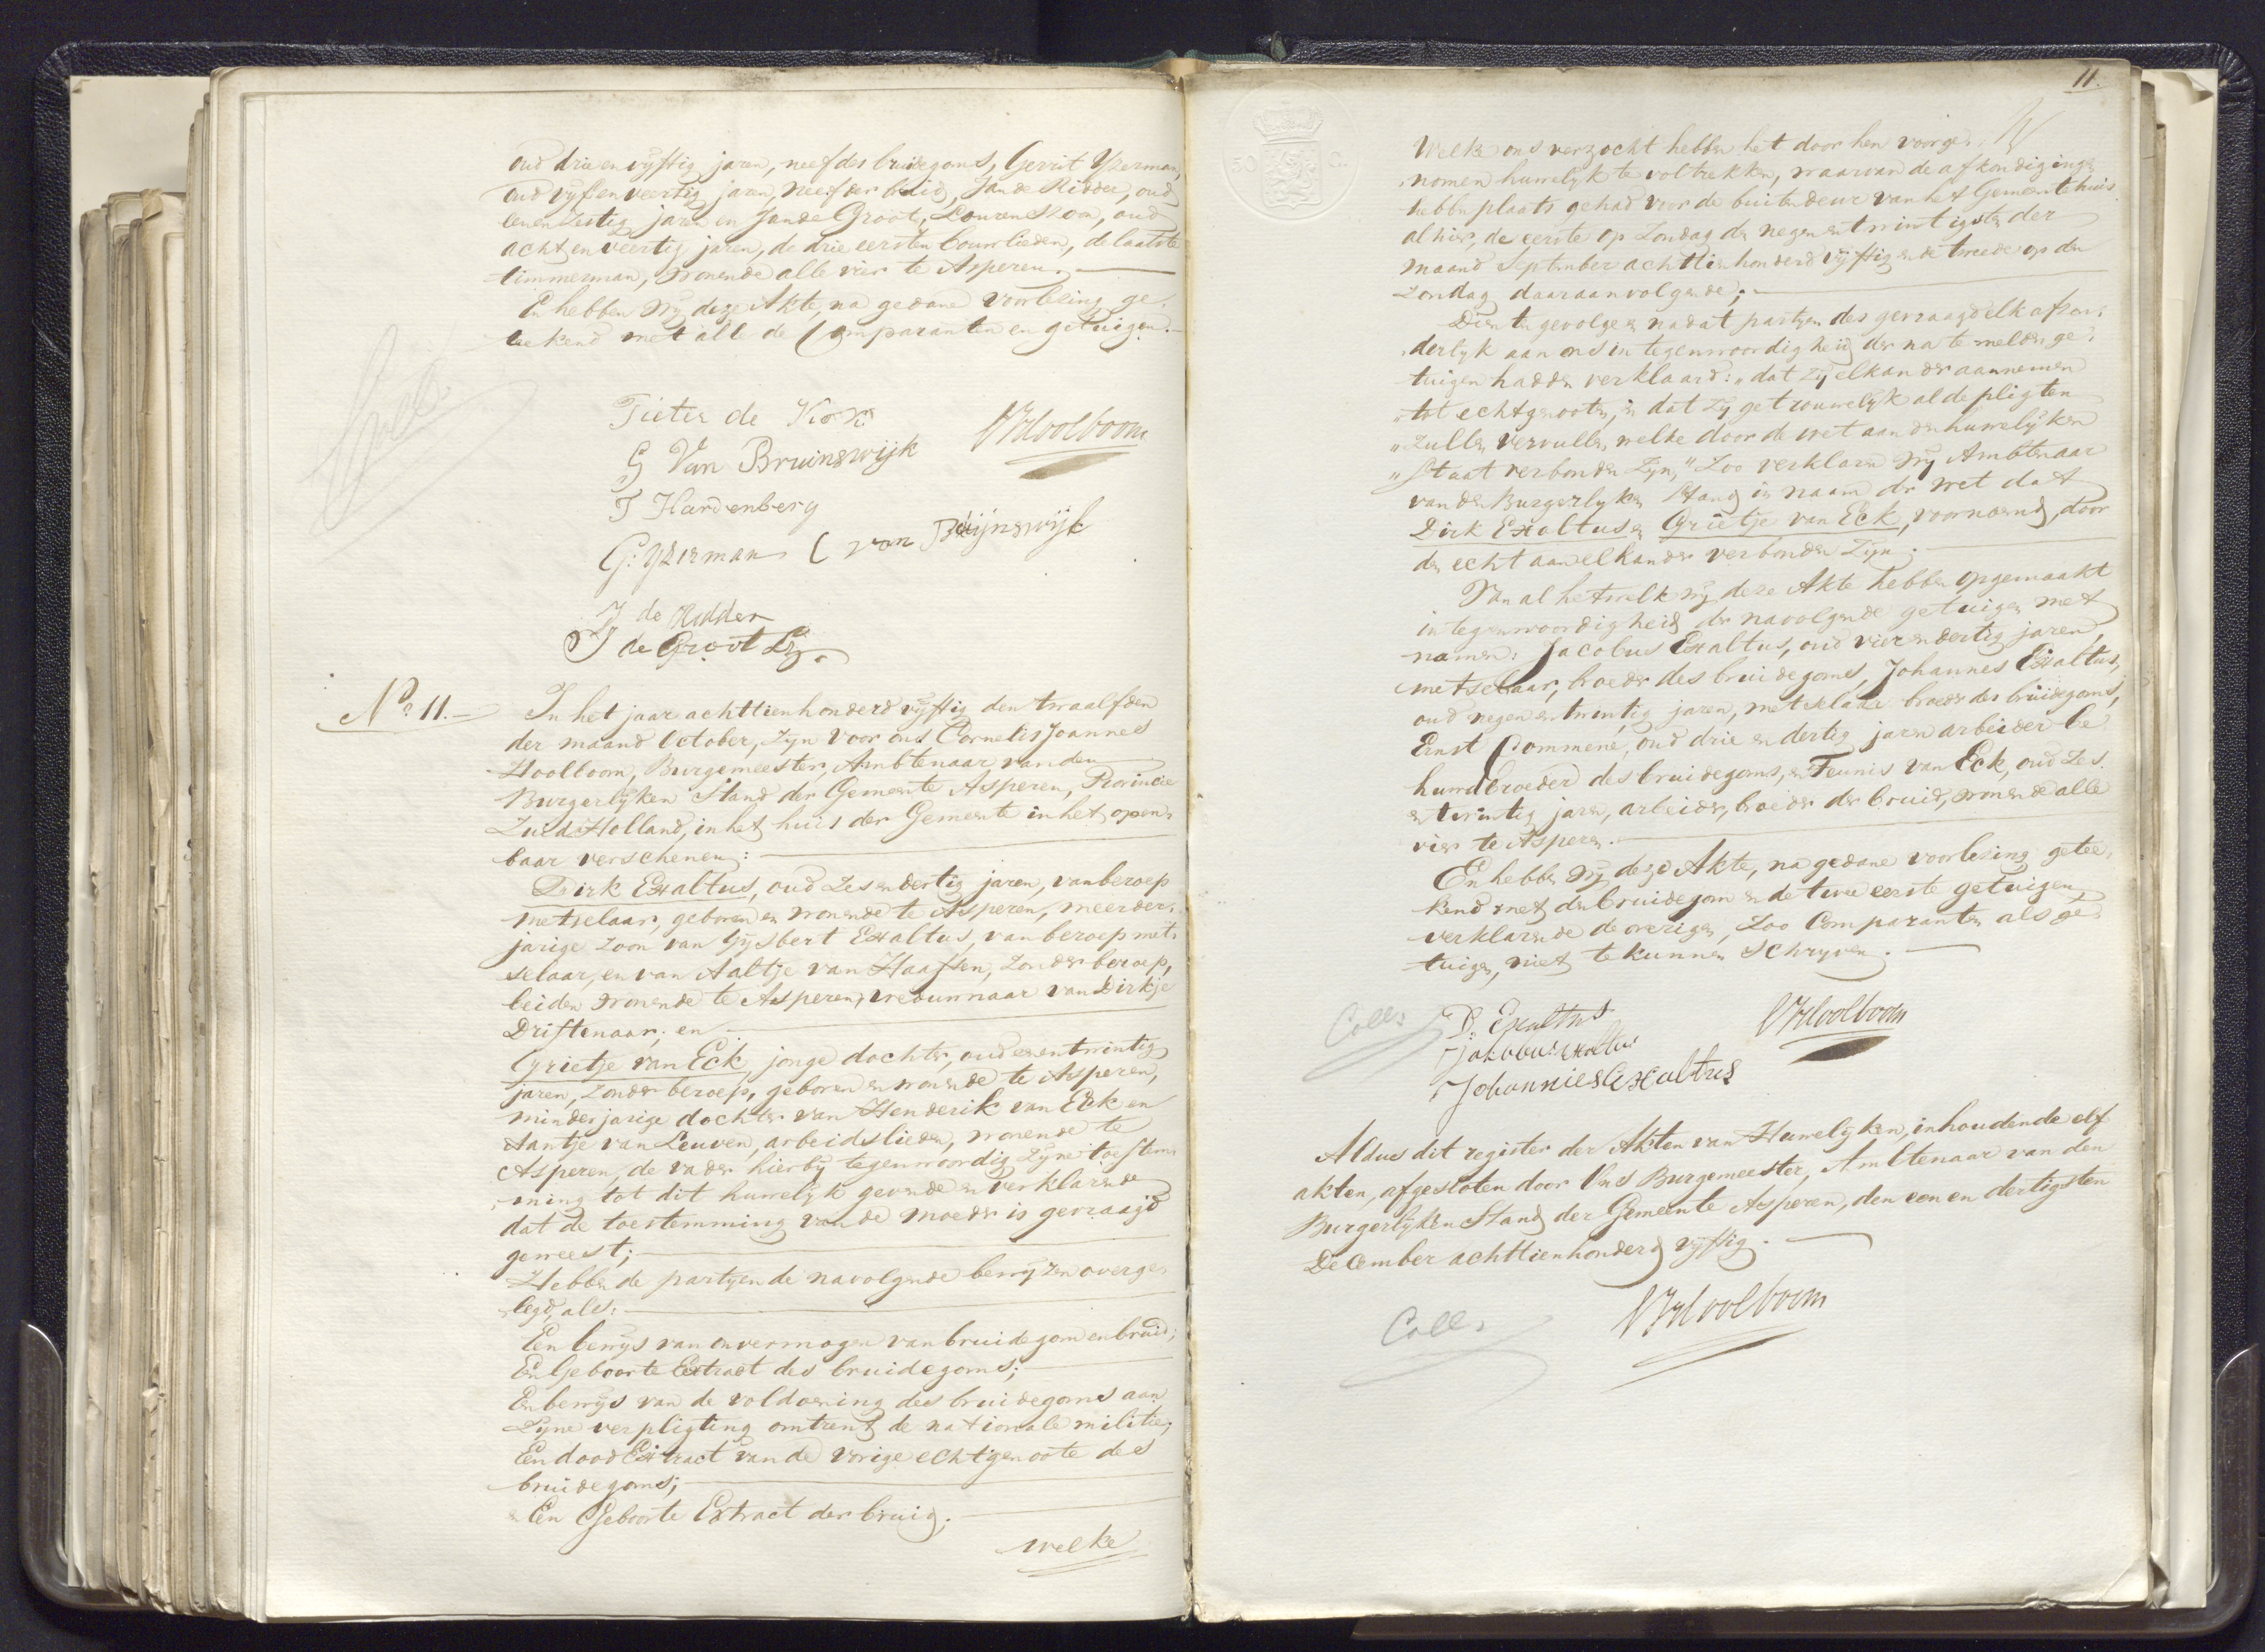 oud drie en vijftig jaren, neef des bruidegoms, Gerrit Yzerman,
oud vijf en veertig jaren, neef der bruid, Jan de Ridder, oud
een en zestig jaren en Jan de Groot, Lourenszoon, oud
acht en veertig jaren, de drie eersten bouwlieden, de laatste
timmerman, wonende alle vier te Asperen.
En hebben wij deze Akte, na gedane voorlezing ge-
teekend met alle de Comparanten en getuigen.
Pieter de Kock
G Van Bruinswijk
CJHoolboom
T Hardenberg
G: Yzerman C van Bruijnswijk
J de Ridder
J de Groot Lz.
Coll:
No. 11.
In het jaar achttienhonderd vijftig den twaalfden
der maand October, zijn voor ons Cornelis Joannes
Hoolboom, Burgemeester, Ambtenaar van den
Burgerlijken Stand der Gemeente Asperen, Provincie
Zuid Holland, in het huis der Gemeente in het open-
baar verschenen:
Dirk Exaltus, oud zes en dertig jaren, van beroep
metselaar, geboren en wonende te Asperen, meerder-
jarige zoon van Gijsbert Exaltus, van beroep met-
selaar, en van Aaltje van Haaften, zonder beroep,
beiden wonende te Asperen, weduwnaar van Dirkje
Driftenaar; en
Grietje van Eck, jonge dochter, oud een en twintig
jaren, zonder beroep, geboren en wonende te Asperen,
minderjarige dochter van Henderik van Eck en
Aantje van Leuven, arbeidslieden, wonende te
Asperen, de vader hierbij tegenwoordig zijne toestem-
ming tot dit huwelijk gevende en verklarende
dat de toestemming van de moeder is gevraagd
geweest;
Hebben de partijen de navolgende bewijzen overge-
legd, als:
Een bewijs van onvermogen van bruidegom en bruid;
Een Geboorte Extract des bruidegoms;
Een bewijs van de voldoening des bruidegoms aan
zijne verpligting omtrent de nationale militie;
Een dood Extract van de vorige echtgenoote des
bruidegoms;
en Een Geboorte Extract der bruid;
welke
11.
Welke ons verzocht hebben het door hen voorge-
nomen huwelijk te voltrekken, waarvan de afkondigingen
hebben plaats gehad voor de buitendeur van het Gemeentehuis
alhier, de eerste op Zondag den negen en twintigsten der
maand September achttienhonderd vijftig en de tweede op den
Zondag daaraanvolgende;
Dien ten gevolge en nadat partijen des gevraagd elk afzon-
derlijk aan ons in tegenwoordigheid der na te melden ge-
tuigen hadden verklaard: "dat zij elkander aannemen
"tot echtgenooten, en dat zij getrouwelijk al de pligten
"zullen vervullen, welke door de wet aan den huwelijken
"Staat verbonden zijn," Zoo verklaren wij Ambtenaar
van den Burgerlijken Stand in naam der wet dat
Dirk Exaltus en Grietje van Eck, voornoemd, door
den echt aan elkander verbonden zijn.
Van al hetwelk wij deze Akte hebben opgemaakt
in tegenwoordigheid der navolgende getuigen met
namen: Jacobus Exaltus, oud vier en dertig jaren,
metselaar, broeder des bruidegoms, Johannes Exaltus,
oud negen en twintig jaren, metselaar broeder des bruidegoms,
Ernst Pommené, oud drie en dertig jaren arbeider be
huwdbroeder des bruidegoms, en Teunis van Eck, oud zes
en twintig jaren, arbeider, broeder der bruid, wonende alle
vier te Asperen.
En hebben wij deze Akte, na gedane voorlezing getee-
kend met den bruidegom en de twee eerste getuigen,
verklarende de overigen, zoo Comparanten als ge-
tuigen, niet te kunnen schrijven.
Coll:
D: Exaltus
CJHoolboom
Jakobus Exaltus
Johannies Exaltus
Aldus dit register der Akten van Huwelijken, inhoudende elf
akten, afgesloten door Ons Burgemeester, Ambtenaar van den
Burgerlijken Stand der Gemeente Asperen, den een en dertigsten
December achttienhonderd vijftig.
CJHoolboom
Coll: